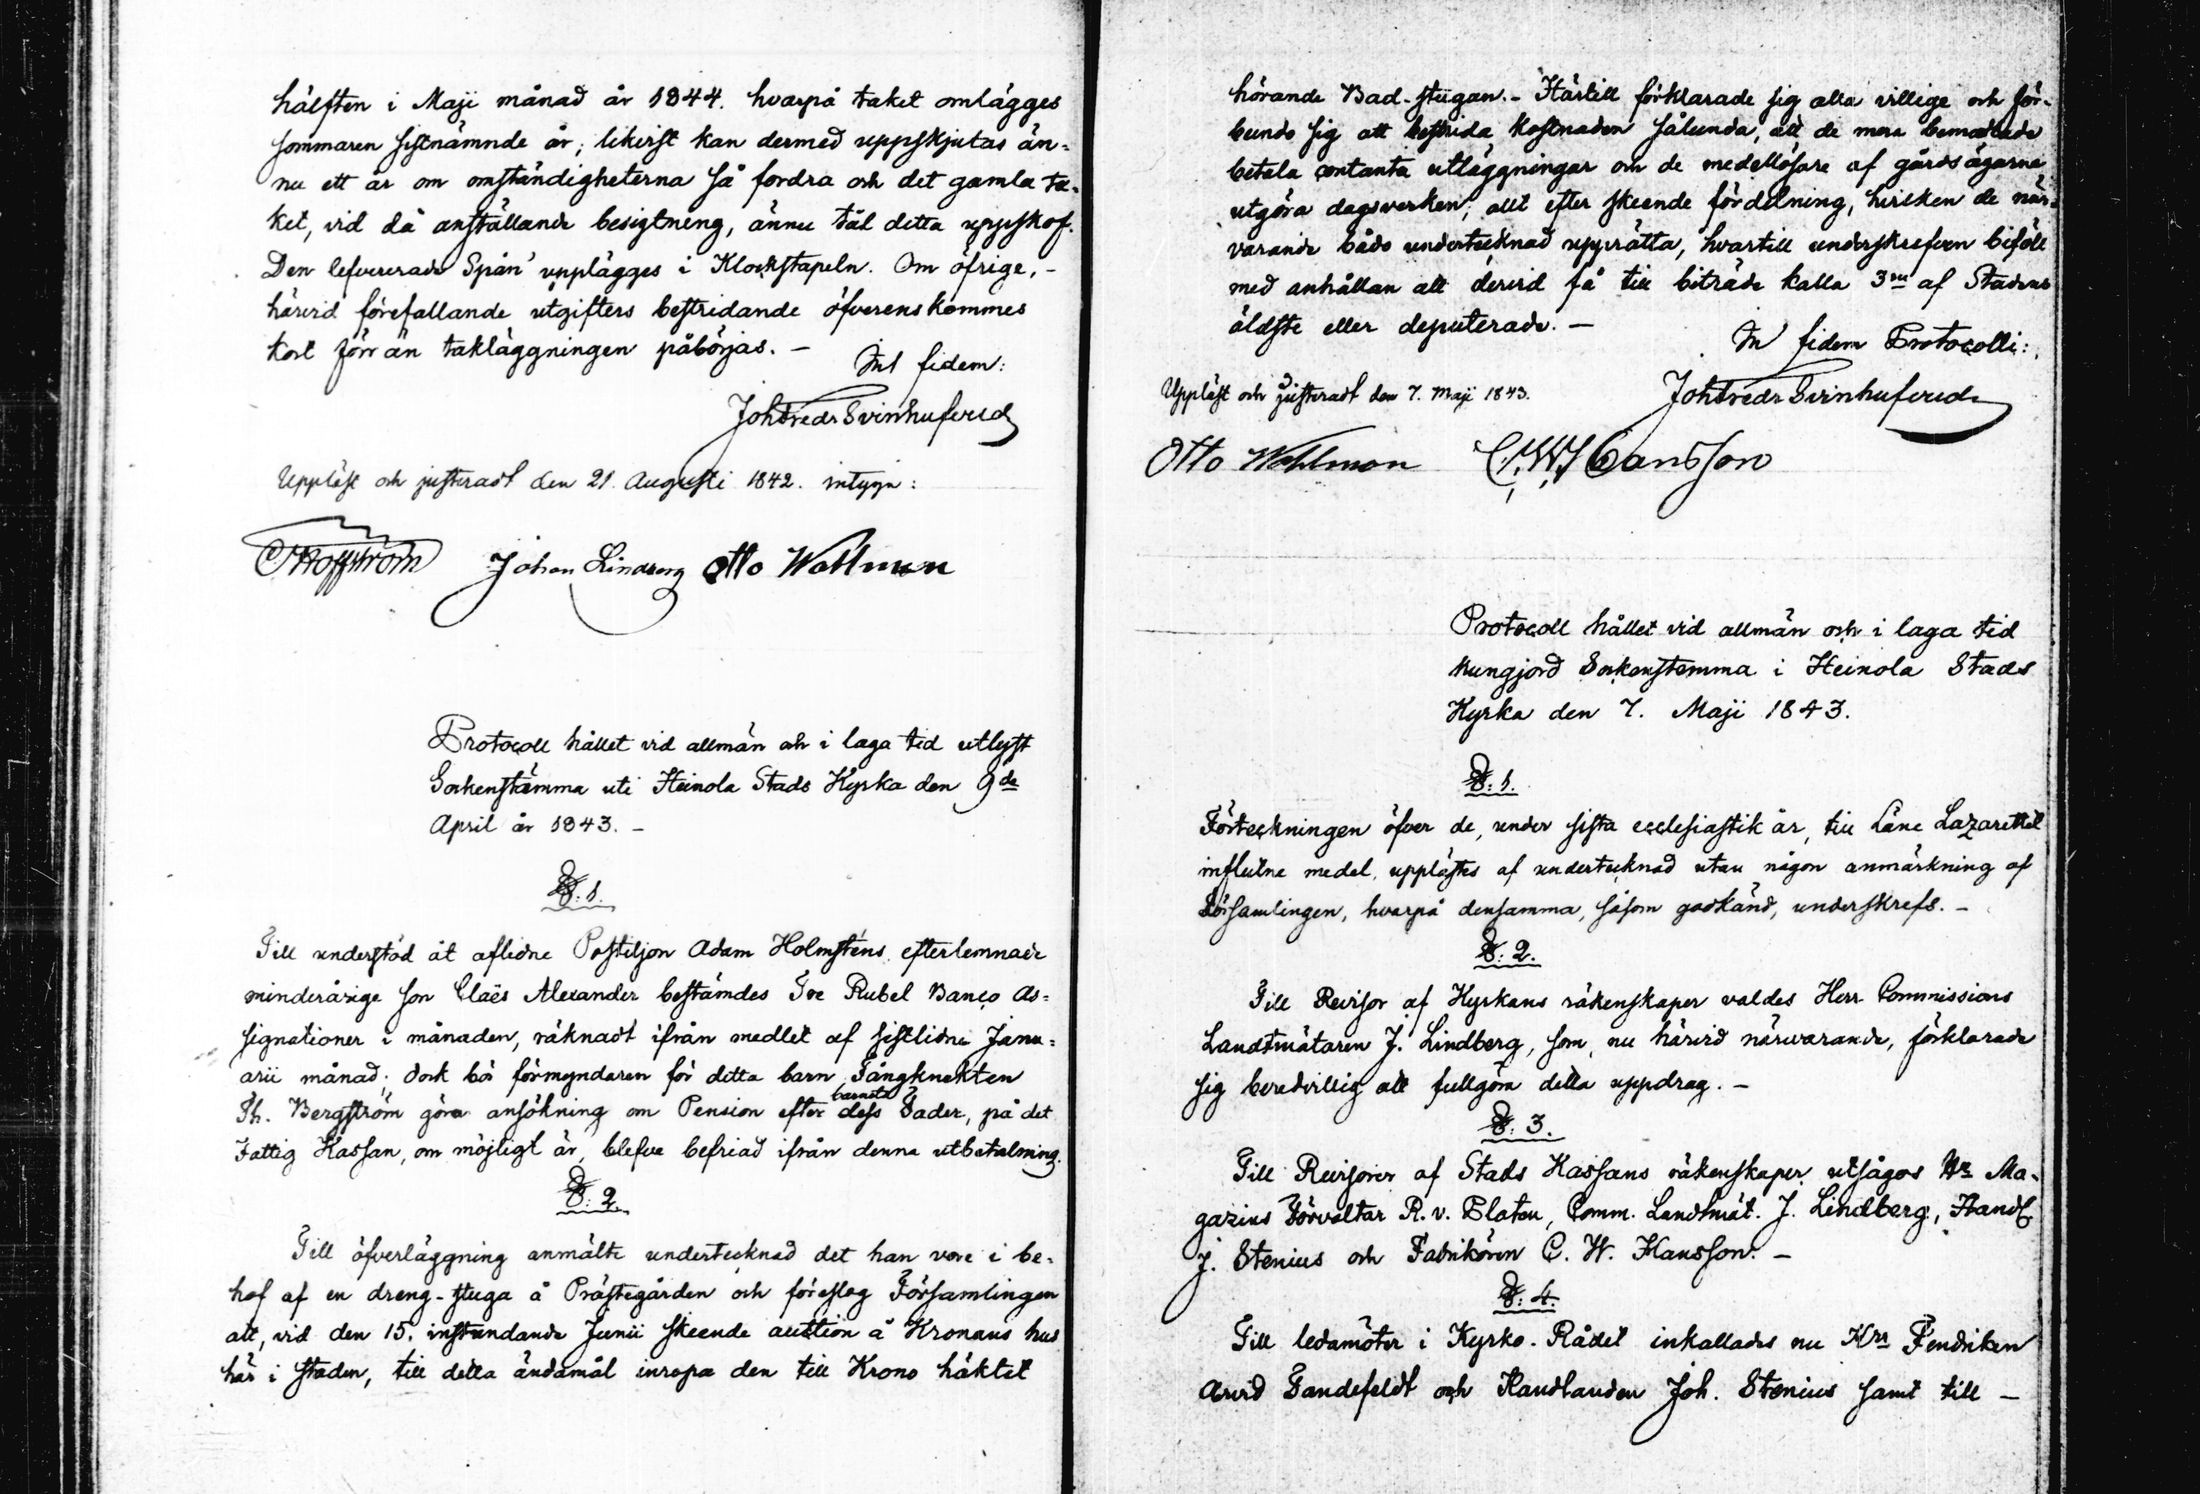 hälften i Maji månad år 1844. hvarpå taket omlägges
sommaren sistnämnde år; likvist kan dermed uppskjutas än-
nu ett år om omständigheterna så fordra och det gamla ta-
ket, vid då anställande besigtning, ännu tål detta uppskof.
Den lefvererade Spån upplägges i Klockstapeln. Om öfrige, -
härvid förefallande utgifters bestridande öfverenskommes
kort förr än takläggningen påbörjas. -
In fidem:
Joh Fredr Svinhufvud
Uppläst och justeradt den 21. Augusti 1842. intyga:
Johan Lindberg Otto Wahlman
Protocoll hållet vid allmän och i laga tid utlyst
Sockenstämma uti Heinola Stads Kyrka den 9de
April år 1843. -
§: 1.
Till understöd åt aflidne Postiljon Adam Holmsténs efterlemnade
minderårige son Claës Alexander bestämdes Tre Rubel Banco As-
signationer i månaden, räknadt ifrån medlet af sistlidne Janu-
arii månad; dock bör förmyndaren för detta barn, Fångknekten
Th. Bergström göra ansökning om Pension efter barnets dess Fader, på det
Fattig Kassan, om möjligt är, blefve befriad ifrån denna utbetalning.
§: 2.
Till öfverläggning anmälte undertecknad det han vore i be-
hof af en dreng-stuga å Prästegården och föreslog Församlingen
att, vid den 15. instundande Junii skeende auction å Kronans hus
här i staden, till detta ändamål inropa den till Krono häktet
hörande Bad-stugan. - Härtill förklarade sig alla villige och för-
bundo sig att bestrida kostnaden sålunda, att de mera bemedlade
betala contanta utläggningar och de medellösare af gårdsägarne
utgöra dagsverken, allt efter skeende fördelning, hvilken de när-
varande bådo undertecknad upprätta, hvartill underskrefven biföll
med anhållan att dervid få till biträde kalla 3ne af Stadens
äldste eller deputerade. -
In fidem Protocolli:
Uppläst och justeradt den 7. Maji 1843.
Joh Fredr Svinhufvud
Otto Wahlman C. W. Hansson
Protocoll hållet vid allmän och i laga tid
kungjord Sockenstemma i Heinola Stads
Kyrka den 7. Maji 1843.
§: 1.
Förteckningen öfver de, under sista ecclesiastik år, till Läne Lazarettet
influtne medel, upplästes af undertecknad utan någon anmärkning af
Församlingen, hvarpå densamma, såsom godkänd, underskrefs. -
§: 2.
Till Revisor af Kyrkans räkenskaper valdes Herr Commissions
Landtmätaren J. Lindberg, som, nu härvid närwarande, förklarade
sig beredvillig att fullgöra detta uppdrag. -
§: 3.
Till Revisorer af Stads Kassans räkenskaper utsågos Hr Ma-
gazins Förvaltar R. v. Platen, Comm. Landtmät. J. Lindberg, Handl.
J. Stenius och Fabrikören C. W. Hansson. -
§: 4.
Till ledamöter i Kyrko-Rådet inkallades nu Hrr Fendriken
Arvid Tandefeldt och Handlanden Joh. Stenius samt till -